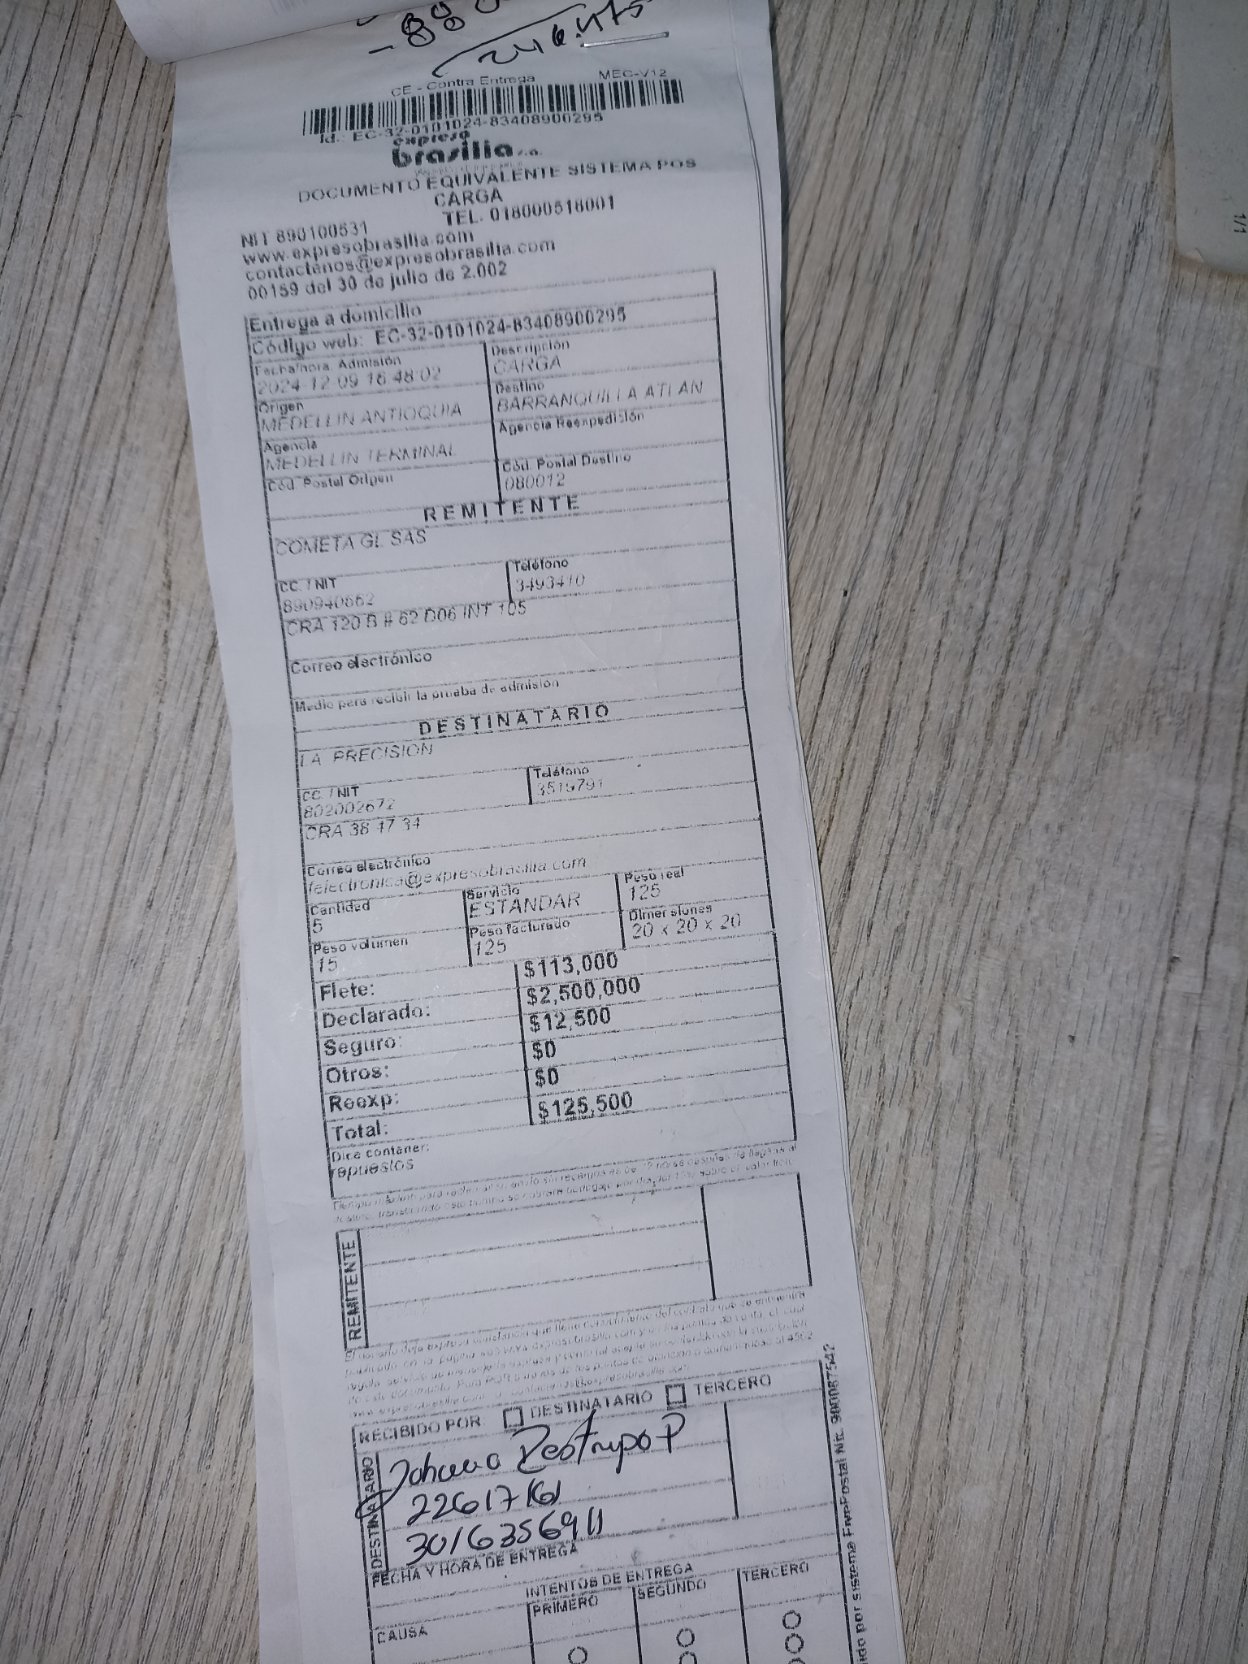 -88
246.475
CE - Contra Entrega MEC-V12
Id.: EC-32-0101024-83408900295
expreso
brasilia s.a.
DOCUMENTO EQUIVALENTE SISTEMA POS
CARGA
NIT 890100531 TEL. 018000518001
www.expresobrasilia.com
contactenos@expresobrasilia.com
00159 del 30 de julio de 2.002
Entrega a domicilio
Código web: EC-32-0101024-83408900295
Fecha/hora. Admisión Descripción
2024-12-09 16:48:02 CARGA
Origen Destino
MEDELLIN ANTIOQUIA BARRANQUILLA ATLAN
Agencia Agencia Reexpedición
MEDELLIN TERMINAL
Cód. Postal Origen Cód. Postal Destino
080012
REMITENTE
COMETA GL SAS
CC. / NIT Teléfono
890940662 3493410
CRA 120 B # 62 D06 INT 105
Correo electrónico
Medio para recibir la prueba de admisión
DESTINATARIO
LA PRECISION
CC. / NIT Teléfono
802002672 3519791
CRA 38 47 34
Correo electrónico
felectronica@expresobrasilia.com
Cantidad Servicio Peso real
5 ESTANDAR 125
Peso volumen Peso facturado Dimensiones
15 125 20 x 20 x 20
Flete: $113,000
Declarado: $2,500,000
Seguro: $12,500
Otros: $0
Reexp: $0
Total: $125,500
Dice contener:
repuestos
REMITENTE
RECIBIDO POR DESTINATARIO TERCERO
DESTINATARIO
Johana Restrepo P
22617161
3016356911
FECHA Y HORA DE ENTREGA
INTENTOS DE ENTREGA
CAUSA PRIMERO SEGUNDO TERCERO
1/1